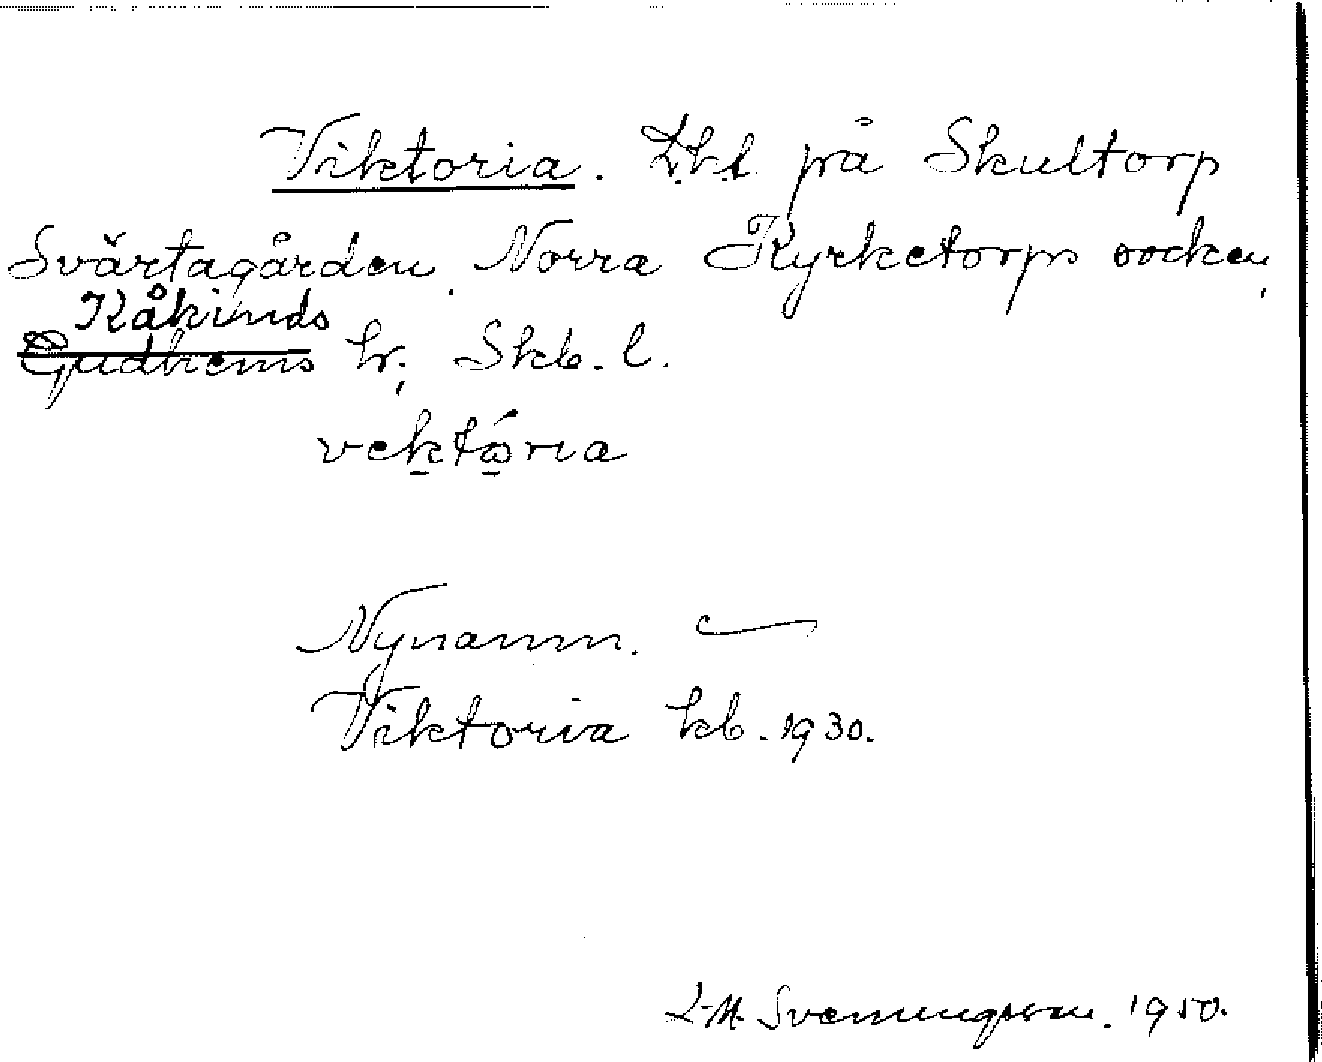 Viktoria. Lht på Skultorp
Svärtagården. Norra Kyrketorps socken,
Kåkinds
Gudhems hr, Skb. l.
vektória
Nynamn.
Viktoria kb. 1930.
L-M. Svenningsson. 1950.